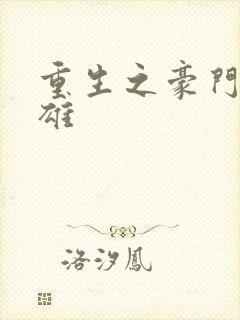 重生之豪門
雄
洛汐鳳